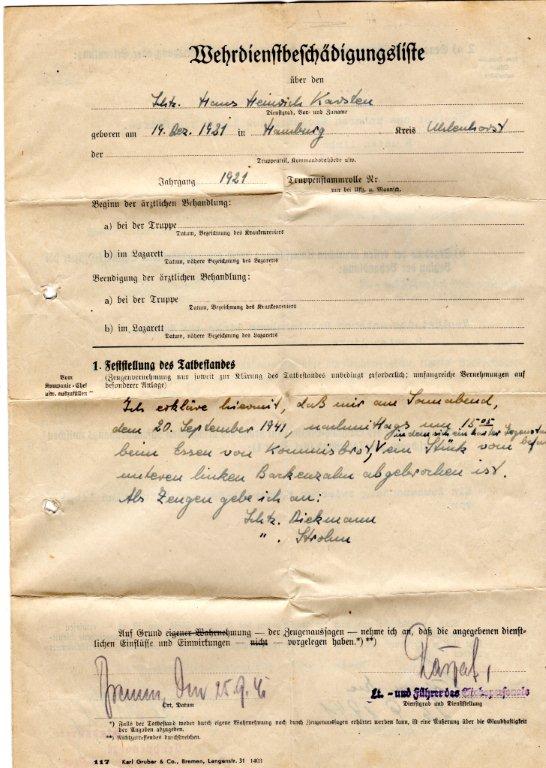 Wehrdienstbeschädigungsliste
über den
Schtz. Hans Heinrich Karsten
Dienstgrad, Vor- und Zuname
geboren am 19. Dez. 1921 in Hamburg Kreis Uhlenhorst
der
Truppenteil, Kommandobehörde usw.
Jahrgang 1921 Truppenstammrolle Nr
nur bei Uffz. u. Mannsch.
Beginn der ärztlichen Behandlung:
a) bei der Truppe
Datum, Bezeichnung des Krankenreviers
b) im Lazarett
Datum, nähere Bezeichnung des Lazaretts
Beendigung der ärztlichen Behandlung:
a) bei der Truppe
Datum, Bezeichnung des Krankenreviers
b) im Lazarett
Datum, nähere Bezeichnung des Lazaretts
1. Feststellung des Tatbestandes
Vom Kompanie-Chef usw. auszufüllen
(Zeugenvernehmung nur soweit zur Klärung des Tatbestandes unbedingt erforderlich; umfangreiche Vernehmungen auf
besonderer Anlage)
Ich erkläre hiermit, daß mir am Sonnabend,
dem 20. September 1941, nachmittags um 15⁰⁵
in dem sich ein harter
beim Essen von Kommisbrot, ein Stück vom
unteren linken Backenzahn abgebrochen ist.
Als Zeugen gebe ich an:
Schtz. Diekmann
" . Strohm
Auf Grund eigener Wahrnehmung — der Zeugenaussagen — nehme ich an, daß die angegebenen dienst-
lichen Einflüsse und Einwirkungen — nicht — vorgelegen haben.*) **)
Bremen, den 25.9.41
Ort, Datum
Lt. - und Führer des
Dienstgrad und Dienststellung
*) Falls der Tatbestand weder durch eigene Wahrnehmung noch durch Zeugenaussagen erhärtet werden kann, ist eine Äußerung über die Glaubhaftigkeit
der Angaben abzugeben.
**) Nichtzutreffendes durchstreichen.
117 Karl Gruber & Co., Bremen, Langenstr. 31 1403